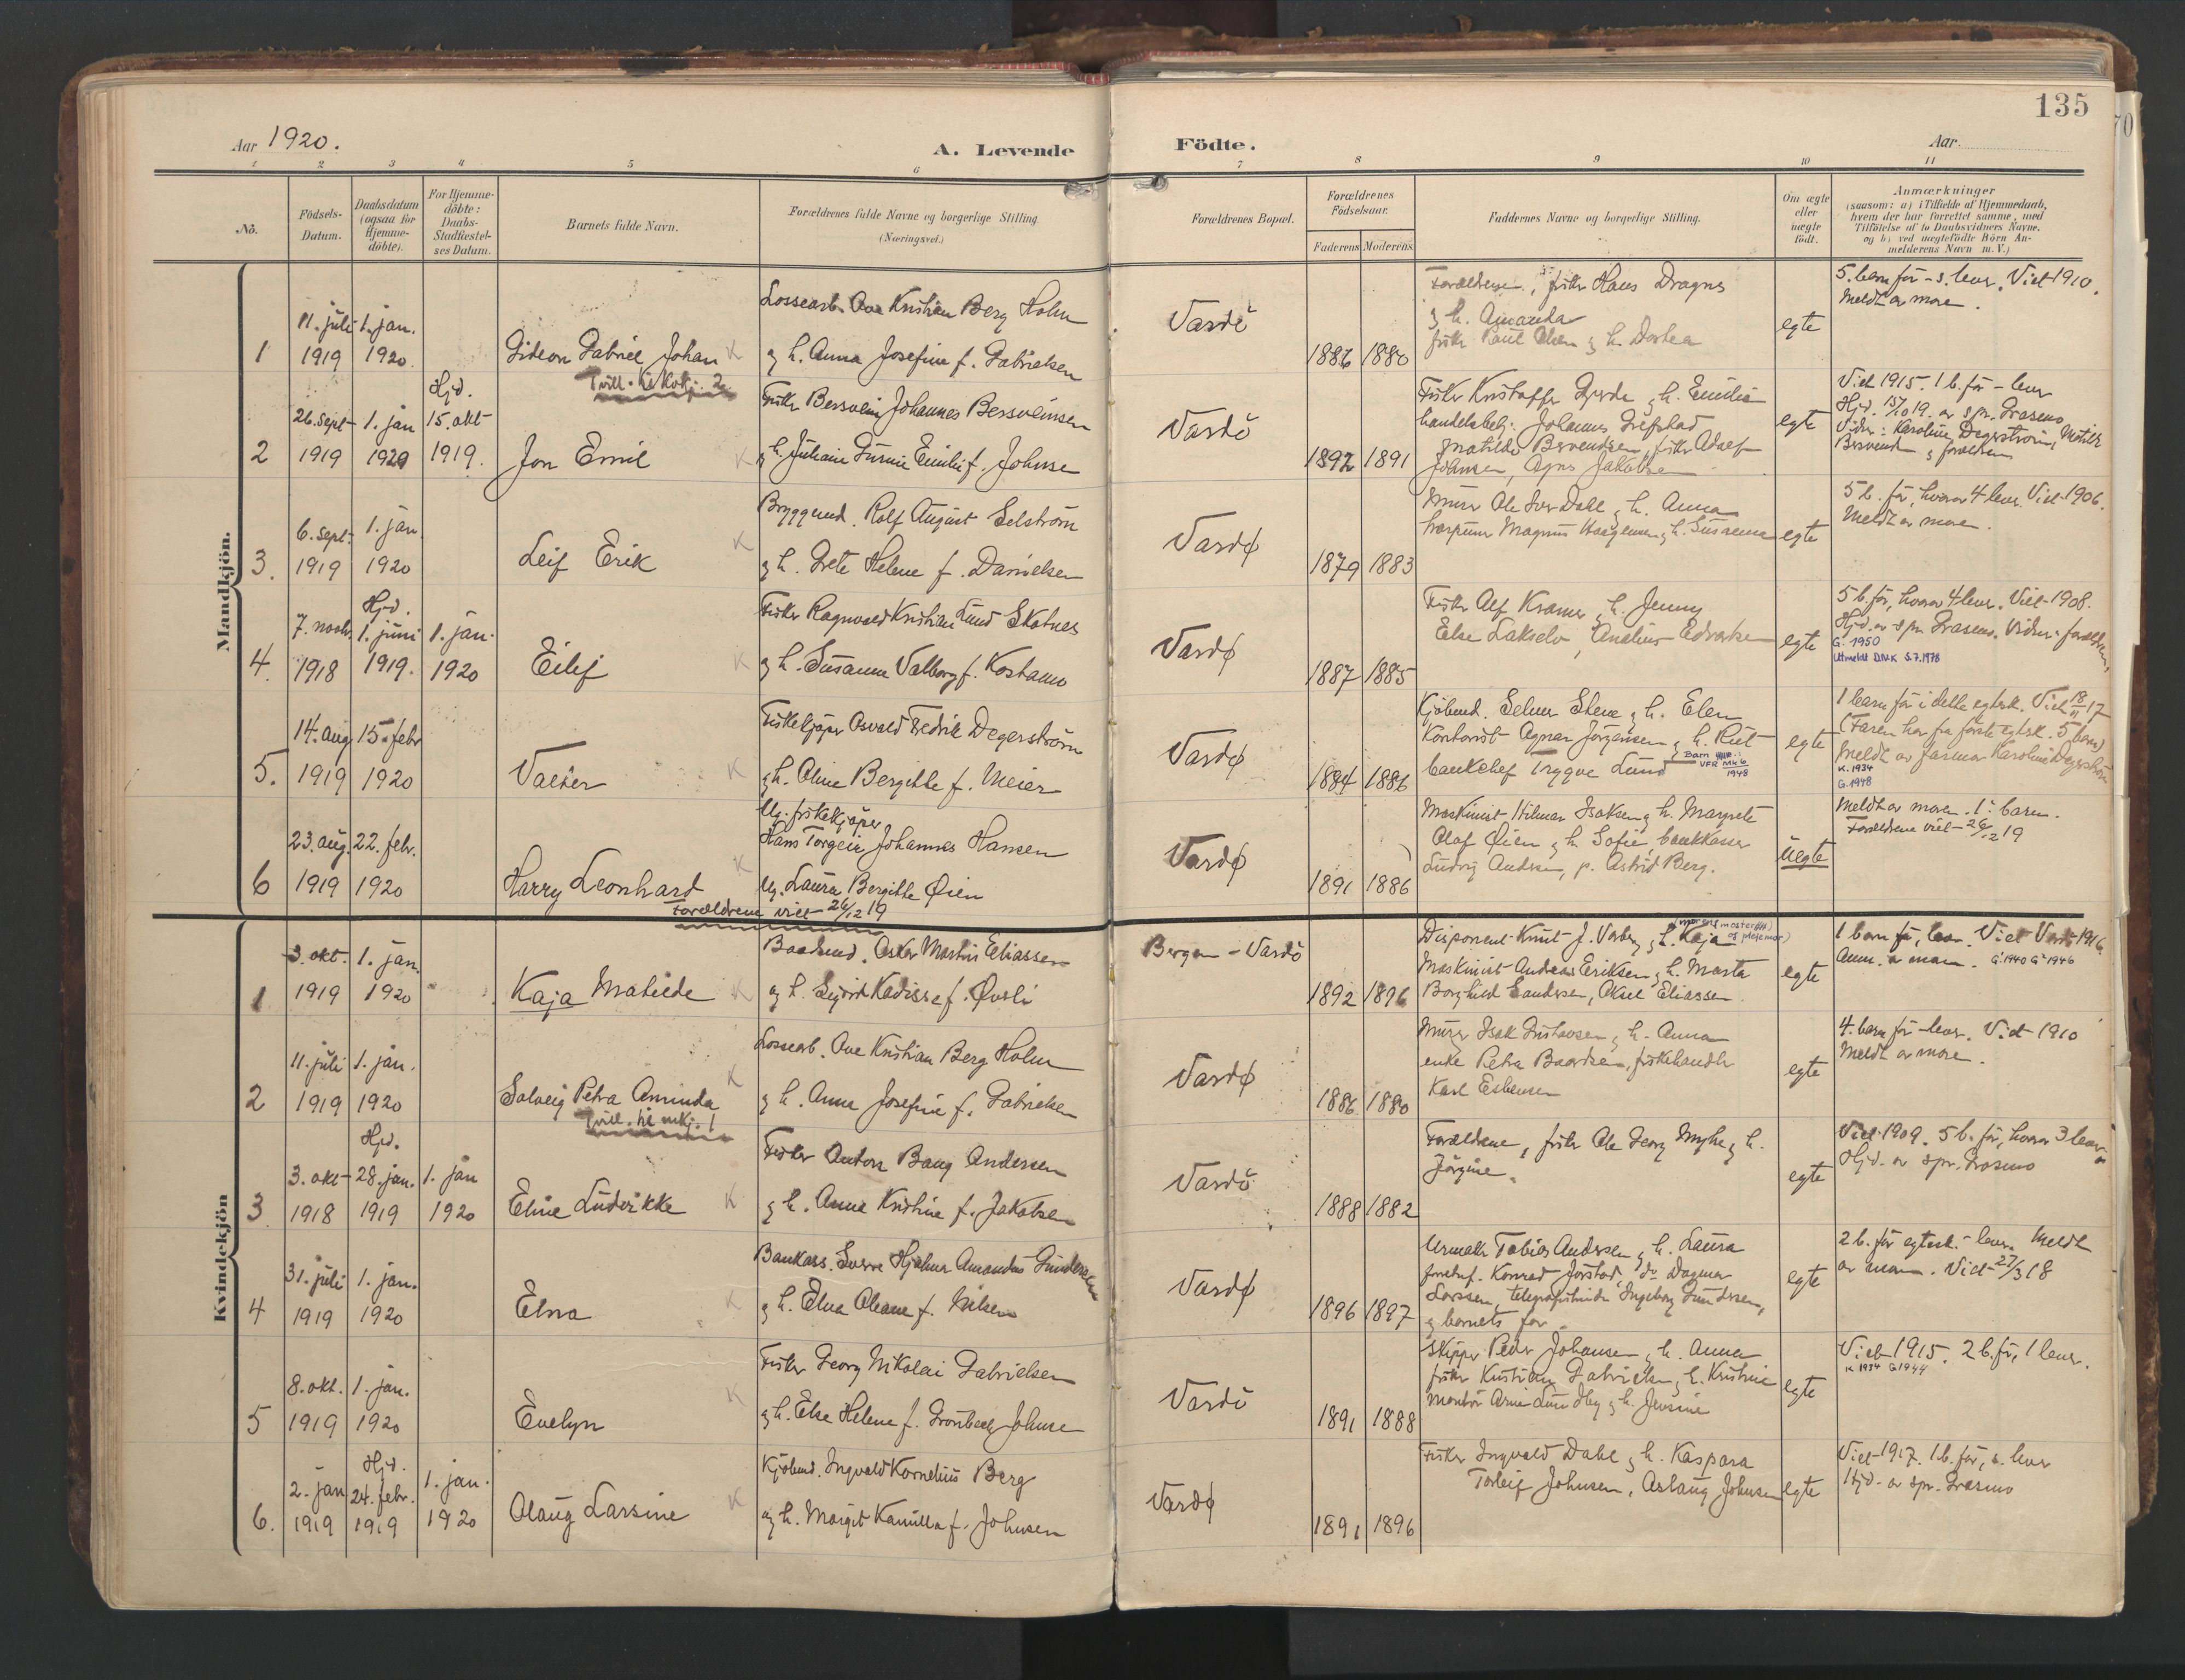 135
Aar 1920.
A. Levende Födte.
Aar.
1 2 3 4 5 6 7 8 9 10 11
No.
Födsels-Datum.
Daabsdatum (ogsaa for Hjemme-döbte).
For Hjemme-döbte: Daabs-Stadfæstel-ses Datum.
Barnets fulde Navn.
Forældrenes fulde Navne og borgerlige Stilling.
(Næringsvei.)
Forældrenes Bopæl.
Forældrenes Födselsaar.
Faderens Moderens
Faddernes Navne og borgerlige Stilling.
Om ægte eller uægte födt.
Anmærkninger
(saasom: a) i Tilfælde af Hjemmedaab,
hvem der har forrettet samme, med
Tilföielse af to Daabsvidners Navne.
og b) ved uægtefödte Börn An-
melderens Navn m.V.)
Mandkjön.
1
11. juli 1919
1. jan. 1920
Gideon Gabriel Johan K
Tvill. kvkj. 2
Lossearb. Ove Kristian Berg Holm
og h. Anna Josefine f. Gabrielsen
Vardö
1886 1880
Forældrene, fisker Hans Dragnes
og h. Amanda
fisker Paul Olsen og h. Dortea
egte
5. barn før - s. lever. Viet 1910.
Meldt av moren.
2
26. sept 1919
1. jan 1920
Hjd. 15. okt 1919.
Jon Emil K
Fisker Bersvein Johannes Bersveinsen
og h. Juliane Emilie f. Johnsen
Vardö
1892 1891
Fisker Kristoffer og h. Emilie
handelsbetj. Johannes
Johansen, Jakobsen
egte
Viet 1915. 1 b. før - lever
Hjd. 15/10 19. av spr. Grasmo
Vidner: Karoline Degerström, Matilde
og forældrene
3.
6. sept. 1919
1. jan. 1920
Leif Erik K
Bryggemd. Rolf August Selström
og h. Grete Helene f. Danielsen
Vardø
1879 1883
Murer Ole Iver Dahl og h. Anna
Magnus og h. Susanna
egte
5 b. før, hvorav 4 lever. Viet 1906.
Meldt av moren.
4.
7. novb. 1918
Hjd. 1. juni 1919.
1. jan. 1920
Eilif K
Fisker Ragnvald Kristian Lund Skotnes
og h. Susanne Valborg f. Kostamo
Vardø
1887 1885
Fisker Alf Kramer og h. Jenny
Else Lakselv,
egte
5 b. før, hvorav 4 lever. Viet 1908.
Hjd. av spr. Grasmo. Vidner: forældrene.
G. 1950
Utmeldt DNK 5.7.1978
5.
14. aug 1919
15. febr 1920
Valter K
Fiskekjøper Osvald Fredrik Degerström
og h. Oline Bergitte f. Meier
Vardø
1884 1886
Kjøbmd. Selmer Stene og h. Elen
Kontorist Agnar Jörgensen og h. Rut
bankchef Trygve Lund
Barn VFR Mk 6 1948
egte
1 barn før i dette egtesk. Viet 18/11 17
(Faren har fra første egtesk. 5 barn)
Meldt av farmor Karoline Degerström
K. 1934
G. 1948
6
23. aug. 1919
22. febr. 1920
Harry Leonhard K
Forældrene viet 26/12 19
Ug. fiskekjøper
Hans Torgeir Johannes Hansen
Ug. Laura Bergitte Øien
Vardø
1891 1886
Maskinist Hilmar Isaksen og h. Margrete
Olaf Øien og h. Sofie, bankkasser
Ludvig Andersen, p. Astrid Berg.
Uegte
Meldt av moren. 1. barn.
Forældrene viet 26/12 19
Kvindekjön
1
3. okt. 1919
1. jan. 1920
Kaja Matilde K
Baadsmd. Oskar Martin Eliassen
og h. Sigrid f. Øvsli
Bergen - Vardö
1892 1896
Disponent Knut J. og h. Kaja (morens moster og plejemor)
Maskinist Andreas Eriksen og h. Marta
Borghild Sandersen, Aksel Eliassen.
egte
1 barn før, lever. Viet Vardö 1916
Anm. av moren. G. 1940 G. 1946
2
11. juli 1919
1. jan. 1920
Solveig Petra Aminda K
Tvill. til mkj. 1
Lossearb. Ove Kristian Berg Holm
og h. Anna Josefine f. Gabrielsen
Vardø
1886 1880
Murer Isak Gustavsen og h. Anna
enke Petra Baardsen, fiskehandler
Karl Esbensen
egte
4. barn før - lever. Viet 1910
Meldt av moren.
3.
3. okt 1918
Hjd. 28. jan. 1919
1. jan 1920
Eline Ludvikke K
Fisker Anton Bang Andersen
og h. Anna Kristine f. Jakobsen
Vardö
1888 1882
Forældrene, fisker Ole Georg Myhre og h.
Jörgine.
egte
Viet 1909. 5 b. før, hvorav 3 lever
Hjd. av spr. Grasmo
4
31. juli 1919
1. jan. 1920
Elna K
Bankass. Sverre Hjalmar Amandus Gundersen
og h. Elna Oleane f. Nilsen
Vardø
1896 1897
Urmaker Tobias Andersen og h. Laura
Konrad Jørstad, do Dagmar
Larssen, Ingeborg Gundersen,
og barnets far.
egte
2 b. før egtesk. - lever. Meldt
av moren. Viet 27/3 18
5
8. okt. 1919
1. jan. 1920
Evelyn K
Fisker Georg Nikolai Gabrielsen
og h. Else Helene f. Johnsen
Vardö
1891 1888
Skipper Peder Johansen og h. Anna
fisker Kristian Gabrielsen og h. Kristine
Montør Arne og h. Jensine
egte
Viet 1915. 2 b. før, 1 lever.
K 1934 G 1944
6.
2. jan 1919
Hjd. 24. febr. 1919
1. jan. 1920
Olaug Larsine K
Kjøbmd. Ingvald Kornelius Berg
og h. Margit Kamilla f. Johnsen
Vardø
1891 1896
Fisker Ingvald Dahl og h. Kaspara
Torleif Johnsen, Aslaug Johnsen
egte
Viet 1917. 1 b. før, s. lever
Hjd. av spr. Grasmo